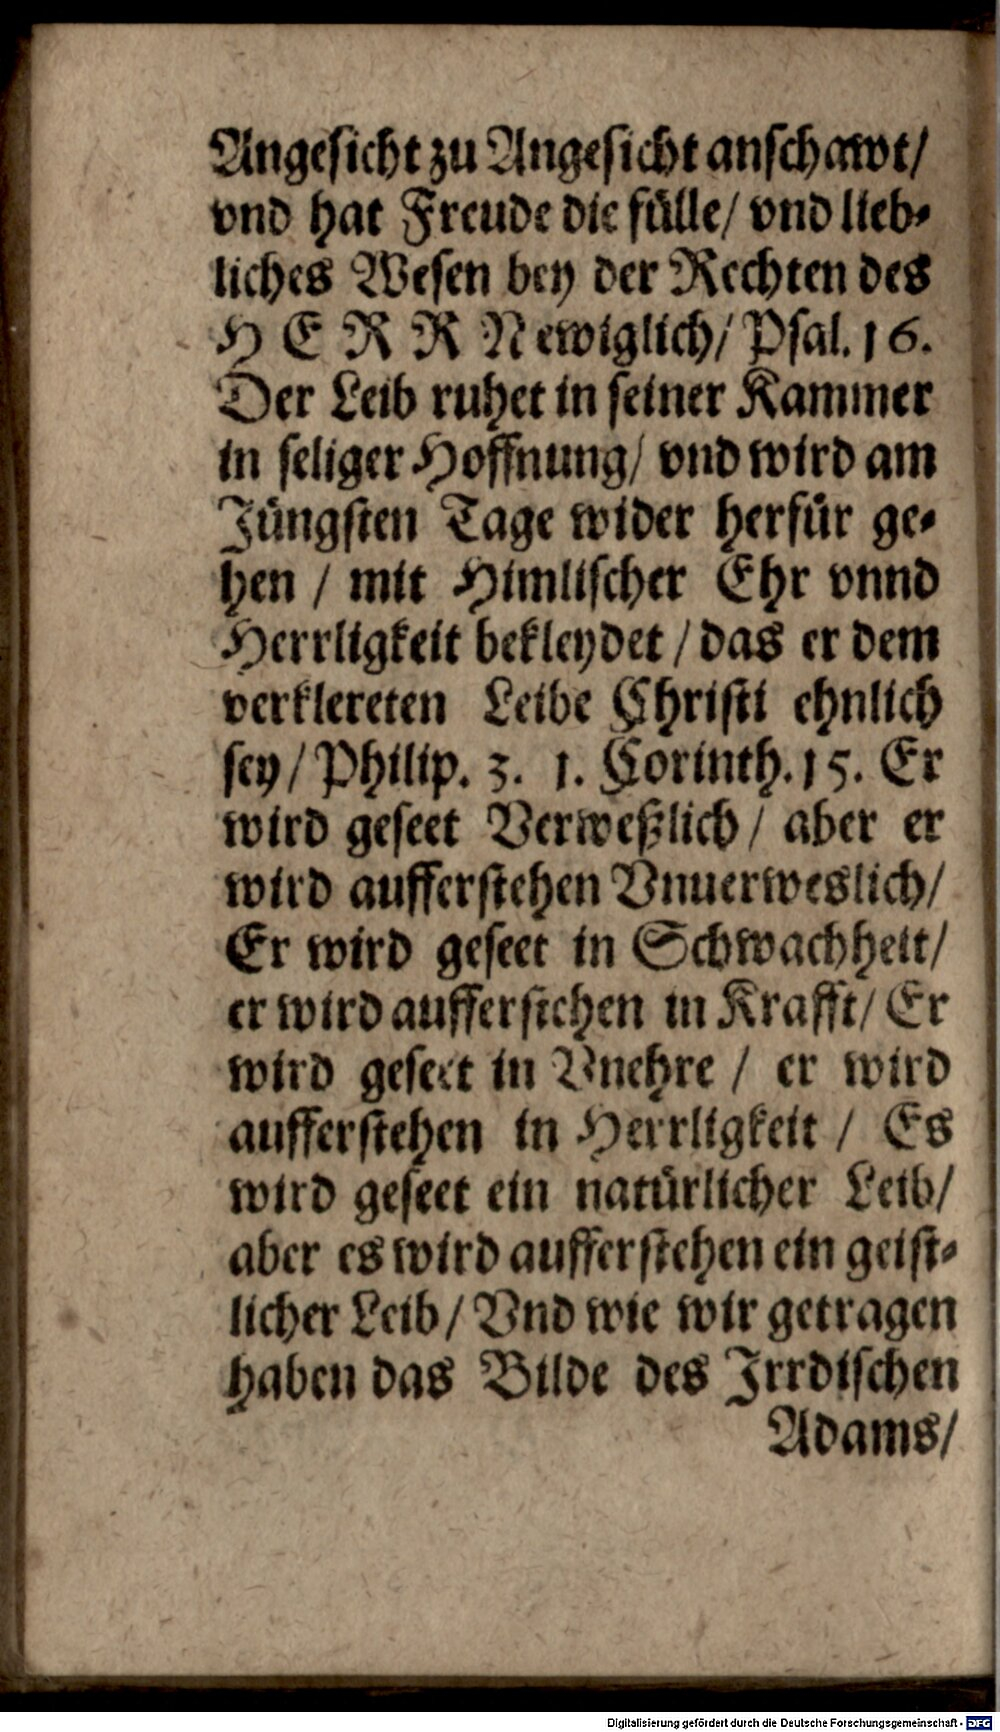 Angesicht zu Angesicht anschawt/
vnd hat Freude die fülle/ vnd lieb-
liches Wesen bey der Rechten des
HERRN ewiglich/ Psal. 16.
Der Leib ruhet in seiner Kammer
in seliger Hoffnung/ vnd wird am
Jüngsten Tage wider herfür ge-
hen / mit Himlischer Ehr vnnd
Herrligkeit bekleydet / das er dem
verklereten Leibe Christi ehnlich
sey/ Philip. 3. 1. Corinth. 15. Er
wird geseet Verweßlich / aber er
wird aufferstehen Vnuerweslich/
Er wird geseet in Schwachheit/
er wird aufferstehen in Krafft/ Er
wird geseet in Vnehre / er wird
aufferstehen in Herrligkeit / Es
wird geseet ein natürlicher Leib/
aber es wird aufferstehen ein geist-
licher Leib/ Vnd wie wir getragen
haben das Bilde des Jrrdischen
Adams/
Digitalisierung gefördert durch die Deutsche Forschungsgemeinschaft - DFG